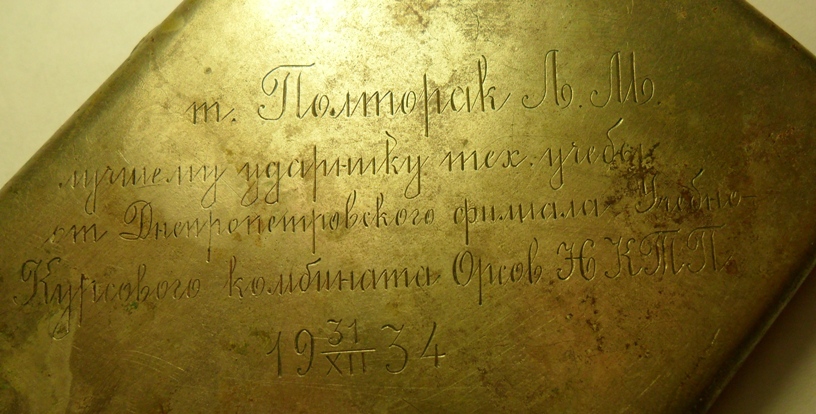 т. Полторак Л. М.
лучшему ударнику тех. учебы
от Днепропетровского филиала Учебно-
Курсового комбината Орсов НКТП.
19 31/XII 34